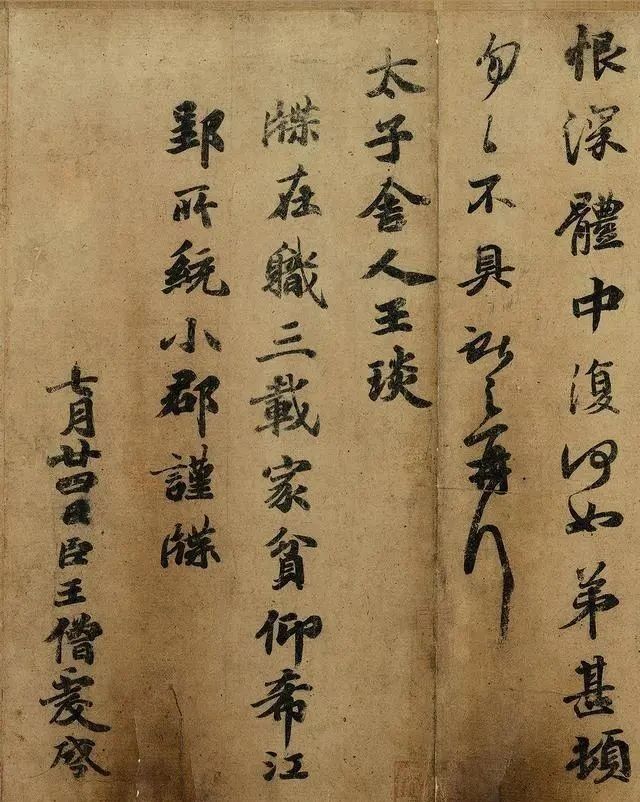 恨深體中復何如弟甚頓
匆々不具獻之再拜
太子舍人王琰
牒在職三載家貧仰希江
郢所統小郡謹牒
七月廿四日臣王僧虔啓